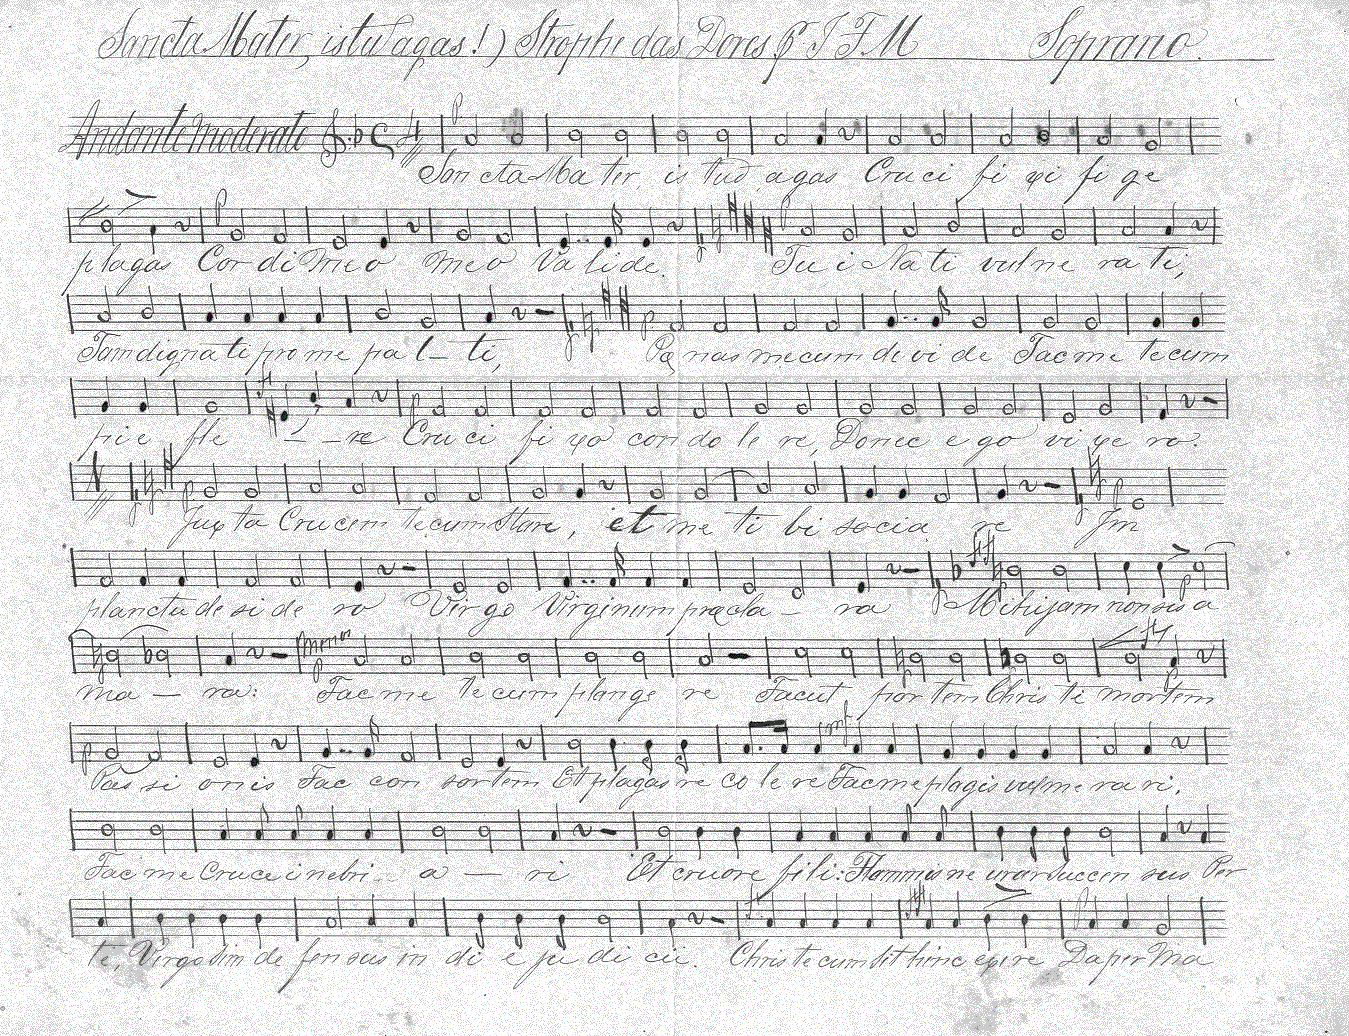 Sancta Mater, istud agas!) Strophe das Dores pr J F. M Soprano.
Andante moderato
p
Sancta Mater, is tud agas Cruci fi xi fi ge
p p
plagas Cor di Meo meo Va lide. Tu i Na ti vulne ra ti,
p
Tam digna ti pro me pa t_ ti, Pœ nas mecum de vi de Fac me te cum
p
pi e fle _ _ re Cru ci fi xo con do le re, Donec e go vi xe ro.
p p
Jux ta Crucem te cum stare, et me ti bi socia re Jm
p
planctu de si de ro Virgo Virginum præcla _ ra Mihi jam non sis a
p
ma _ ra: Fac me te cum plange re Fac ut por tem Chris ti mortem
p mf
Pas si onis Fac con sortem Et plagas re co le re Fac me plagis vulne ra ri.
Fac me Cruce i nebri a _ ri Et cruore fi li: Flammis ne urar succen sus Per
p
te, Virgo Sim de fen sus in di e ju di cii. Chris te cum sit hinc exire Da per Ma